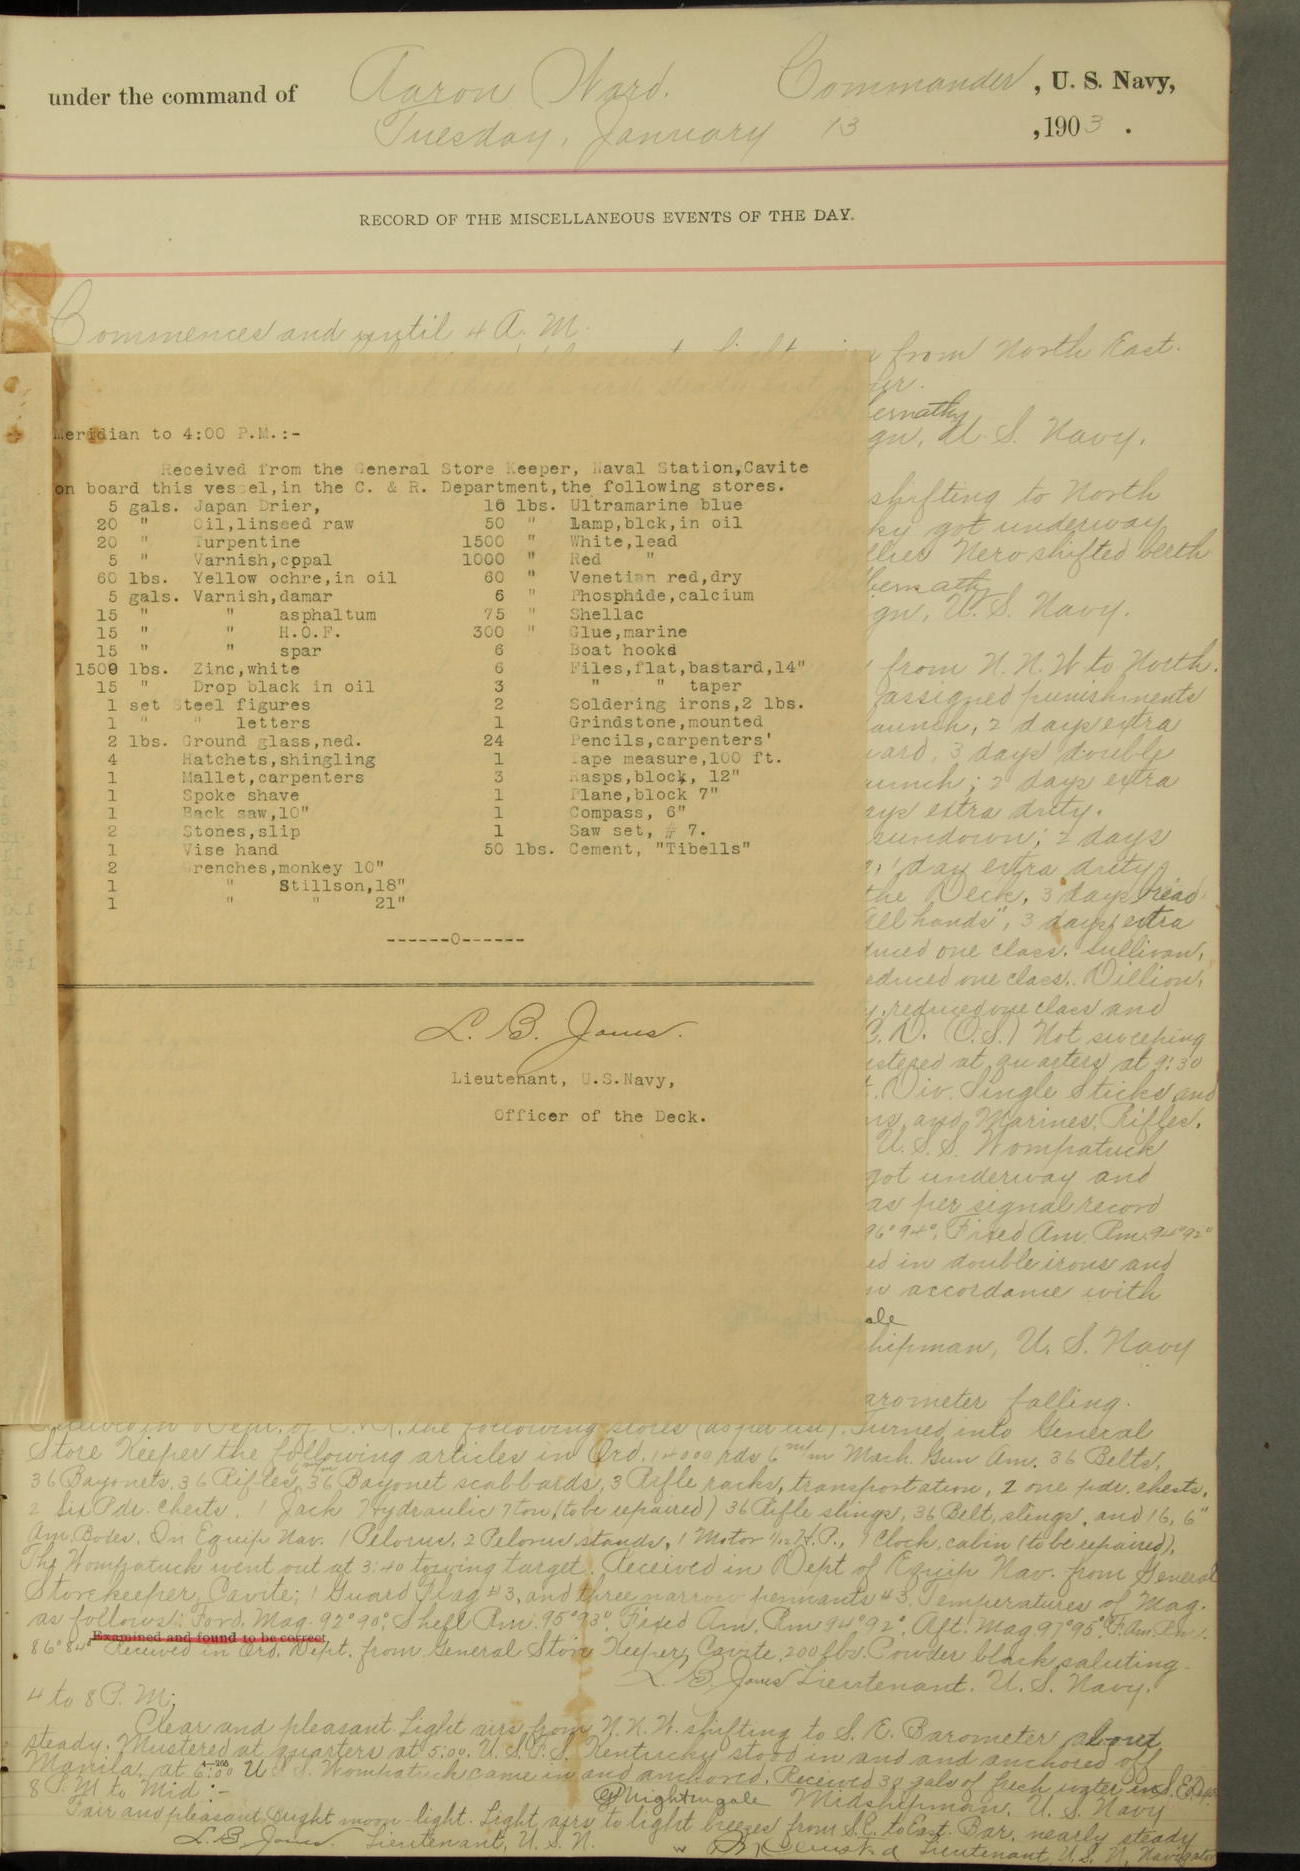 under the command of Aaron Ward. Commander, U. S. Navy,
Tuesday, January 13, 1903.
RECORD OF THE MISCELLANEOUS EVENTS OF THE DAY.
Commences and until 4 A. M.
from North East.
gn, U. S. Navy.
shifting to North
ky got underway
Nero shifted berth
gn, U. S. Navy.
from N. N. W to North.
assigned punishments
aunch, 2 days extra
ward, 3 days double
aunch; 2 days extra
ays extra duty.
sundown; 2 days
day extra duty
the Deck, 3 days
all hands", 3 days extra
duced one class. Sullivan,
educed one class. Dillion,
y, reduced one class and
(O.S.) Not sweeping
stered at quarters at 9:30
Div. Single Sticks and
ns, and Marines, Rifles.
U. S. S. Wompatuck
got underway and
as per signal record
96° 94°. Fixed Am. Rm. 94° 92°
ed in double irons and
in accordance with
ale
hipman, U. S. Navy
arometer falling.
Meridian to 4:00 P.M.:-
Received from the General Store Keeper, Naval Station,Cavite
on board this vessel,in the C. & R. Department,the following stores.
5 gals. Japan Drier, 16 lbs. Ultramarine blue
20 " Oil,linseed raw 50 " Lamp,blck,in oil
20 " Turpentine 1500 " White,lead
5 " Varnish,copal 1000 " Red "
60 lbs. Yellow ochre,in oil 60 " Venetian red,dry
5 gals. Varnish,damar 6 " Phosphide,calcium
15 " " asphaltum 75 " Shellac
15 " " H.O.F. 300 " Glue,marine
15 " " spar 6 Boat hooks
1500 lbs. Zinc,white 6 Files,flat,bastard,14"
15 " Drop black in oil 3 " " taper
1 set Steel figures 2 Soldering irons,2 lbs.
1 " " letters 1 Grindstone,mounted
2 lbs. Ground glass,ned. 24 Pencils,carpenters'
4 Hatchets,shingling 1 Tape measure,100 ft.
1 Mallet,carpenters 3 Rasps,block, 12"
1 Spoke shave 1 Plane,block 7"
1 Back saw,10" 1 Compass, 6"
2 Stones,slip 1 Saw set, # 7.
1 Vise hand 50 lbs. Cement, "Tibells"
2 Wrenches,monkey 10"
1 " Stillson,18"
1 " " 21"
------0------
L. B. Jones.
Lieutenant, U.S.Navy,
Officer of the Deck.
Dept. of C. & R. the following stores (as per list). Turned into General
Store Keeper the following articles in Ord. 14000 rds 6 m/m Mach. Gun Am. 36 Belts,
36 Bayonets, 36 Rifles, 36 Bayonet scabbards, 3 Rifle racks, transportation, 2 one pdr. chests,
2 Six Pdr. Chests, 1 Jack Hydraulic 7 ton (to be repaired) 36 Rifle slings, 36 Belt, slings, and 16, 6"
Am. Boxes. In Equip Nav. 1 Pelorus, 2 Pelorus stands, 1 Motor 1/12 H.P., 1 Clock, cabin (to be repaired).
The Wompatuck went out at 3:40 towing target. Received in Dept of Equip Nav. from General
Storekeeper, Cavite; 1 Guard flag #3, and three narrow pennants #3. Temperatures of Mag.
as follows: Ford. Mag. 92° 90°, Shell Rm. 95° 93°, Fixed Am. Rm 94° 92° Aft. Mag 97° 95°, F. Am. Rm.
Examined and found to be correct
86° 84° Received in Ord. Dept. from General Store Keeper, Cavite, 200 lbs. Powder black, saluting.
L. B. Jones Lieutenant. U. S. Navy.
4 to 8 P. M;
Clear and pleasant. Light airs from N. N. W. shifting to S. E. Barometer about
steady. Mustered at quarters at 5:00. U. S. F. S. Kentucky stood in and and anchored off
Manila, at 6:00 U. S. S. Wompatuck came in and anchored. Received 38 gals of fresh water in S. E. Dept.
Nightingale Midshipman. U. S. Navy
8 P. M to Mid:-
Fair and pleasant. Bright moon-light. Light airs to light breezes from S. E. to East. Bar. nearly steady
L. B. Jones. Lieutenant, U. S. N. Lieutenant U. S. N. Navigator